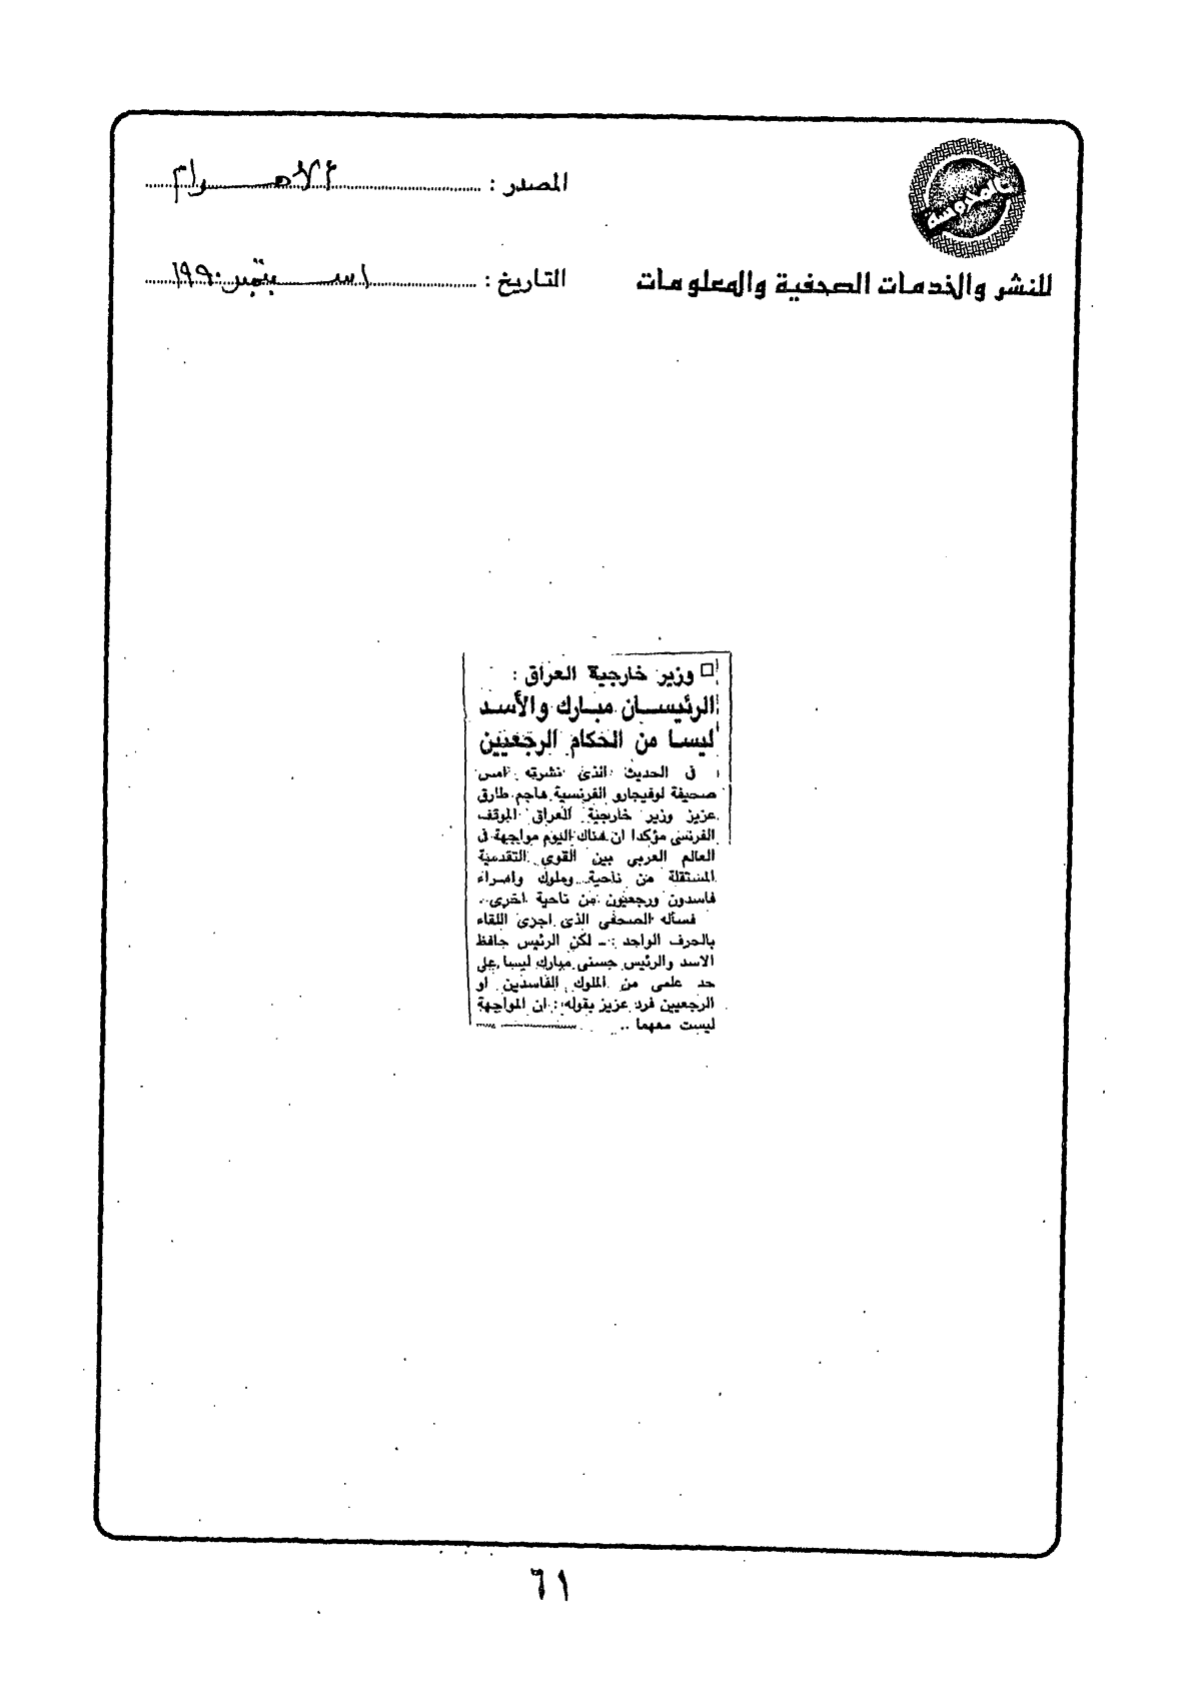 المصدر : الأهرام
التاريخ : ١ سبتمبر ١٩٩٠
للنشر والخدمات الصحفية والمعلومات
□ وزير خارجية العراق :
الرئيسان مبارك والأسد
ليسا من الحكام الرجعيين
فى الحديث الذى نشرته امس
صحيفة لوفيجارو الفرنسية هاجم طارق
عزيز وزير خارجية العراق الموقف
الفرنسى مؤكدا ان هناك اليوم مواجهة فى
العالم العربى بين القوى التقدمية
المستقلة من ناحية وملوك وامراء
فاسدون ورجعيون من ناحية اخرى..
فسأله الصحفى الذى اجرى اللقاء
بالحرف الواحد : ـ لكن الرئيس حافظ
الاسد والرئيس حسنى مبارك ليسا على
حد علمى من الملوك الفاسدين او
الرجعيين فرد عزيز بقوله : ان المواجهة
ليست معهما ..
٦١